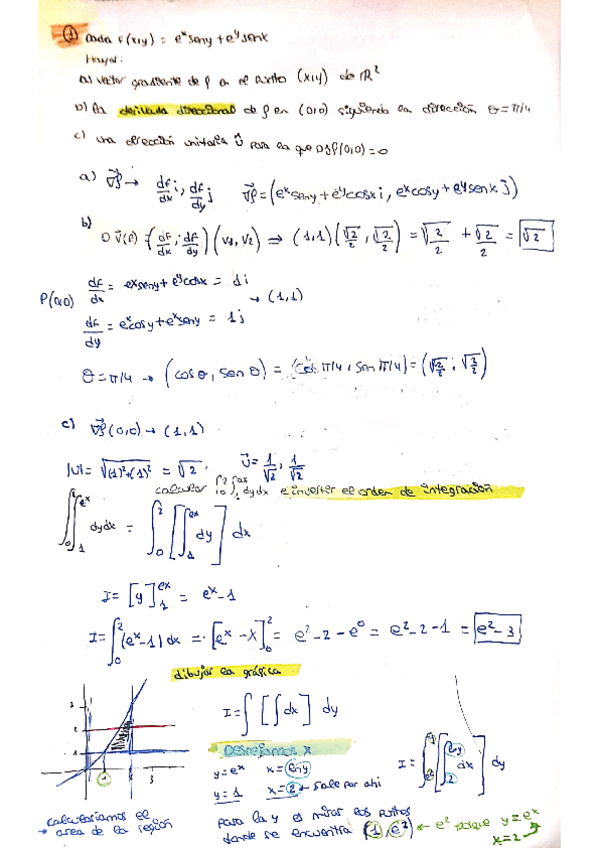 ① dada f(x,y) = eˣ seny + eʸ senx
Hayar:
a) vector gradiente de f a el punto (x,y) de ℝ²
b) la derivada direccional de f en (0,0) siguiendo la dirección θ=π/4
c) una dirección unitaria û para la que Dûf(0,0)=0
a) ∇f → df/dx i, df/dy j ∇f = (eˣ seny + eʸ cosx i, eˣ cosy + eʸ senx j)
b)
D v(P) = (df/dx ; df/dy)(v₁, v₂) ⇒ (1,1)(√2/2, √2/2) = √2/2 + √2/2 = √2
P(0,0) df/dx = eˣ seny + eʸ cosx = 1i
→ (1,1)
df/dy = eˣ cosy + eˣ seny = 1j
θ=π/4 → (cosθ, senθ) = (cos π/4, sen π/4) = (√2/2, √2/2)
c) ∇f(0,0) → (1,1)
|u| = √(1)²+(1)² = √2. û = 1/√2, 1/√2
calcular ∫₀² ∫₁^eˣ dydx e invertir el orden de integración
∫₀² ∫₁^eˣ dydx = ∫₀² [∫₁^eˣ dy] dx
I = [y]₁^eˣ = eˣ - 1
I = ∫₀² (eˣ-1) dx = [eˣ - x]₀² = e² - 2 - e⁰ = e² - 2 - 1 = e² - 3
dibujar la gráfica
I = ∫ [∫ dx] dy
Despejamos x
y = eˣ x = lny
y = 1 x = 2 ← sale por ahi
I = ∫ [∫ dx] dy
lny
2
1
3
calculariamos el
→ area de la región
para la y es mirar los puntos
donde se encuentra (1, e²) ← e² porque y = eˣ
x = 2